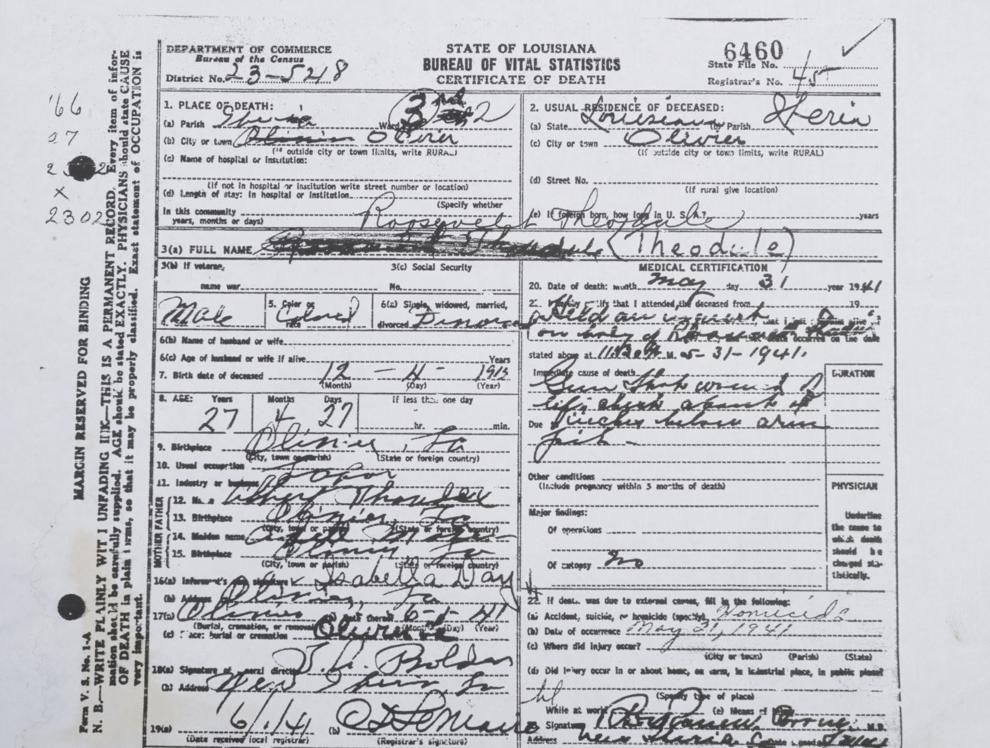 DEPARTMENT OF COMMERCE
Bureau of the Census
District No. 23-548
STATE OF LOUISIANA
BUREAU OF VITAL STATISTICS
CERTIFICATE OF DEATH
6460
State File No.
Registrar's No. 45
'66
27
x
2302
MARGIN RESERVED FOR BINDING
Form V. S. No. 1-A
N. B.—WRITE PLAINLY WIT I UNFADING INK—THIS IS A PERMANENT RECORD. Every item of infor-
mation should be carefully supplied. AGE should be stated EXACTLY. PHYSICIANS should state CAUSE
OF DEATH in plain terms, so that it may be properly classified. Exact statement of OCCUPATION is
very important.
1. PLACE OF DEATH:
(a) Parish Ward 3rd 2
(b) City or town Olivier
(If outside city or town limits, write RURAL)
(c) Name of hospital or institution:
(If not in hospital or institution write street number or location)
(d) Length of stay: In hospital or institution
(Specify whether
In this community
years, months or days)
2. USUAL RESIDENCE OF DECEASED:
(a) State Louisiana (b) Parish Iberia
(c) City or town Olivier
(If outside city or town limits, write RURAL)
(d) Street No.
(If rural give location)
(e) If foreign born, how long in U. S. A.? years
Roosevelt Theodule
3(a) FULL NAME (Theodule)
3(b) If veteran,
name war
3(c) Social Security
No.
Male
5. Color or
race Colored
6(a) Single, widowed, married,
divorced
6(b) Name of husband or wife
6(c) Age of husband or wife if alive Years
7. Birth date of deceased 12 - 4 - 1913
(Month) (Day) (Year)
8. AGE: Years Months Days If less than one day
27 4 27 hr. min.
9. Birthplace Olivier, La
(City, town or parish) (State or foreign country)
10. Usual occupation Labor
11. Industry or business
MOTHER FATHER
12. Name
13. Birthplace Olivier, La
(City, town or parish) (State or foreign country)
14. Maiden name
15. Birthplace La
(City, town or parish) (State or foreign country)
16(a) Informant's signature Isabella Day
(b) Address Olivier, La
17(a) (b) Date thereof 6-1-41
(Burial, cremation, or removal) (Month) (Day) (Year)
(c) Place: burial or cremation Olivier La
18(a) Signature of funeral director Bolden
(b) Address New Iberia La
19(a) 6/1/41 (b)
(Date received local registrar) (Registrar's signature)
MEDICAL CERTIFICATION
20. Date of death: month May day 31 year 1941
21. I certify that I attended the deceased from 19
Held an inquest
on body of Roosevelt
stated above at M. 5-31-1941.
Immediate cause of death
DURATION
Gun Shot wound of
left about
Due inches below arm
pit -
Other conditions
(Include pregnancy within 3 months of death)
PHYSICIAN
Major findings:
Of operations
Of autopsy no
Underline
the cause to
which death
should be
charged sta-
tistically.
22. If death was due to external causes, fill in the following:
(a) Accident, suicide, or homicide (specify) Homicide
(b) Date of occurrence May 31, 1941
(c) Where did injury occur?
(City or town) (Parish) (State)
(d) Did injury occur in or about home, on farm, in industrial place, in public place?
(Specify type of place)
While at work (e) Means of
Signature M.D.
Address New Iberia